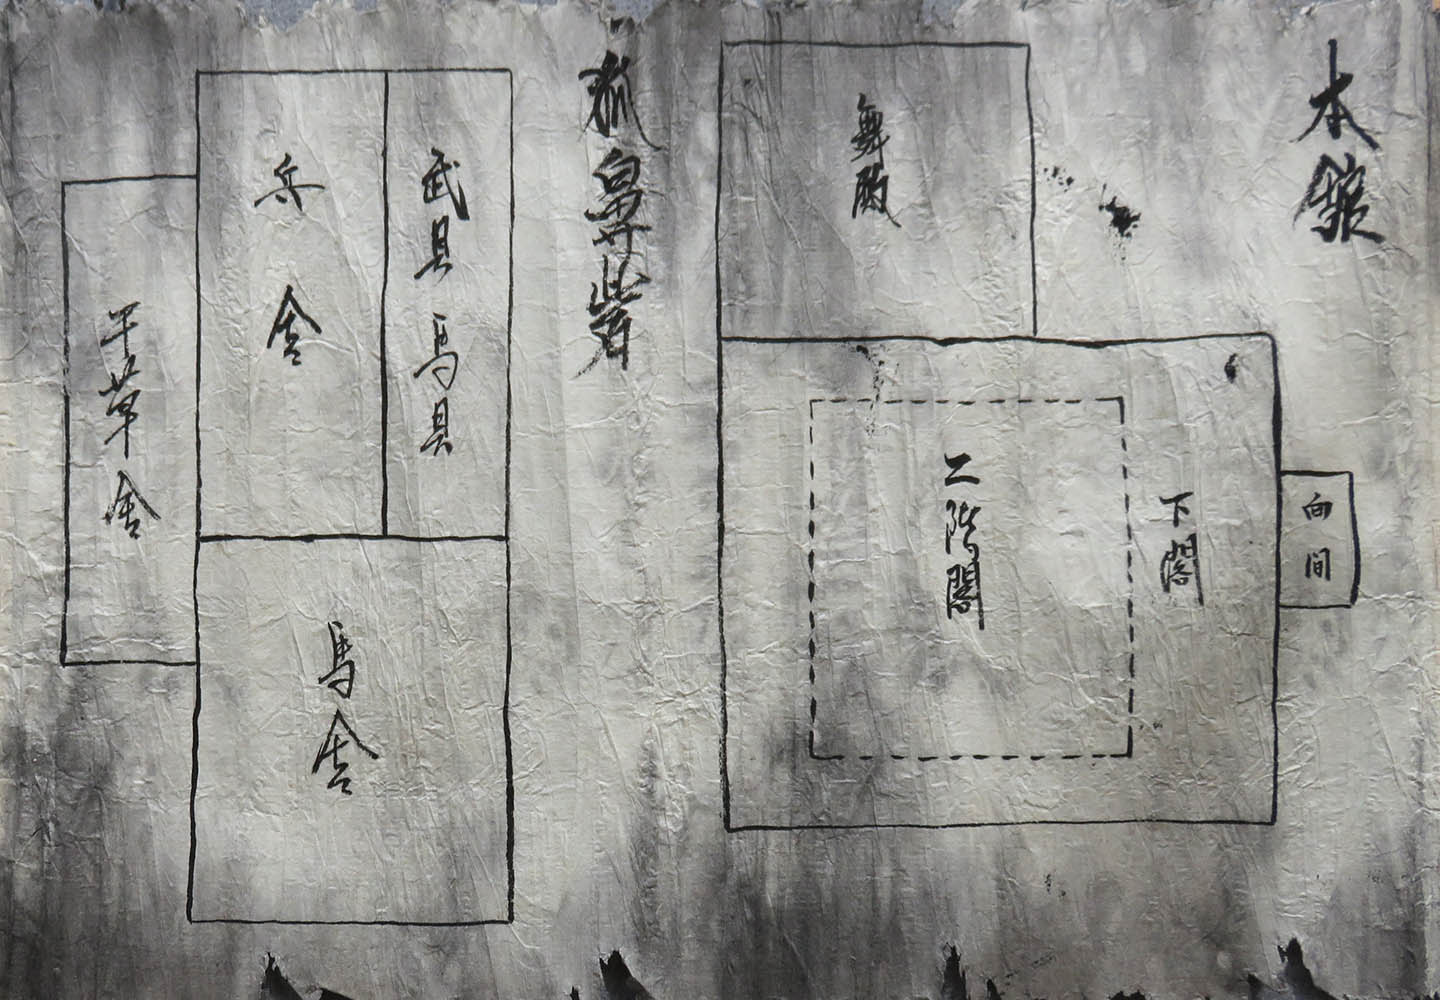 本館
向間
舞殿
二階閣
下閣
狐鼻砦
武具馬具
兵舎
馬舎
干草舎